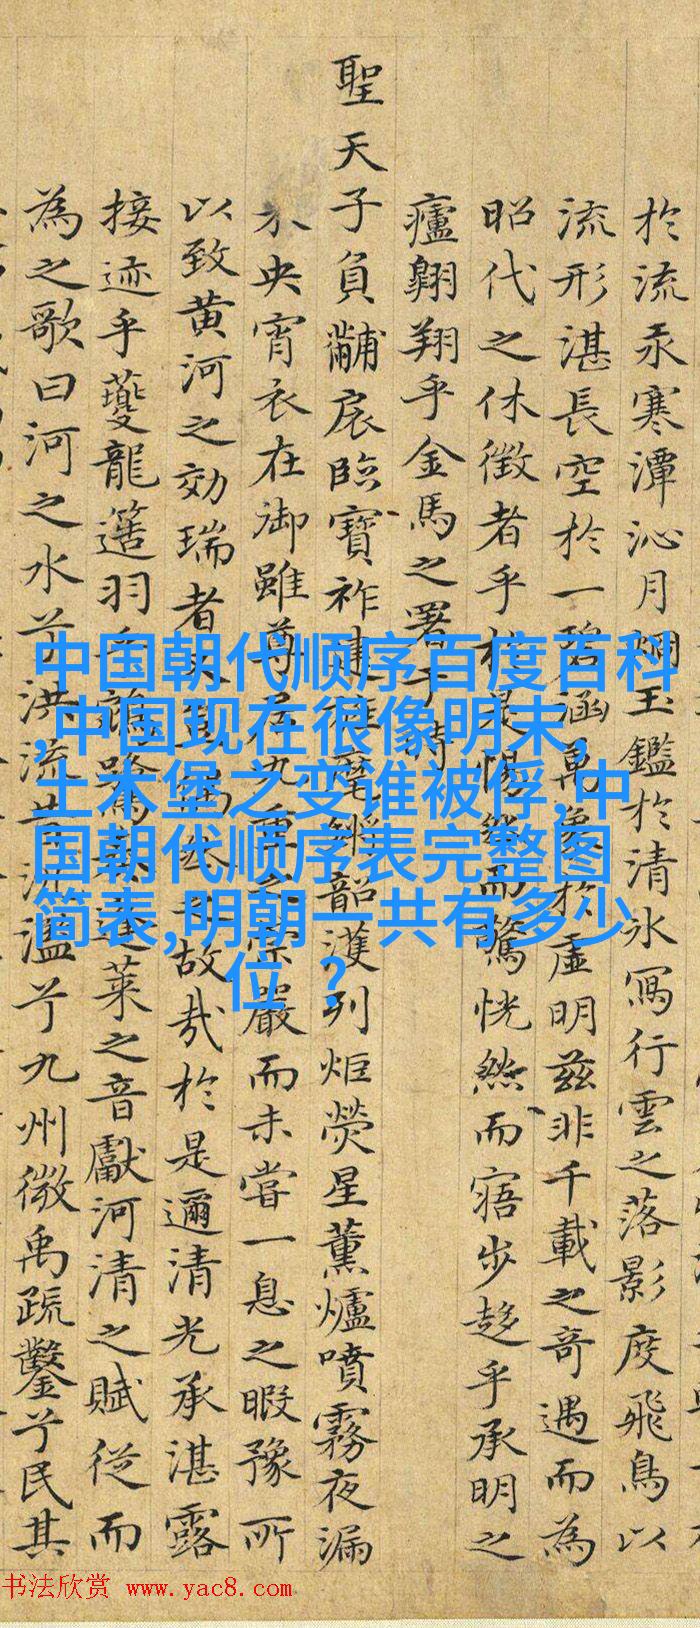 於流汞寒潭沁月烱玉鑑於清氷冩行雲之落影度飛鳥以
流形湛長空於一碧涵萬象於虛明茲非千載之奇遇而為
昭代之休徴者乎於是惕然而驚恍然而寤步趍乎承明之
廬翱翔乎金馬之署于時
聖天子負黼扆臨寶祚建雄麾鏘韶濩列炬熒星薰爐噴霧夜漏
未央宵衣在御雖尊居九重之崇嚴而未嘗一息之暇豫所
以致黄河之効瑞者
故哉於是邇清光承湛露
接迹乎夔龍簉羽乎鵷鷺
蓬萊之音獻河清之賦從而
為之歌曰河之水兮洪流
溢兮九州微禹疏鑿兮民其
中国朝代顺序百度百科
,中国现在很像明末,
土木堡之变谁被俘,中
国朝代顺序表完整图
简表,明朝一共有多少
位 ?
书法欣赏 www.yac8.com